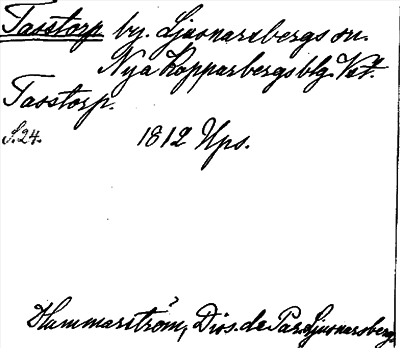 Tasstorp by. Ljusnarsbergs sn.
Nya Kopparbergs blg. Vst.
Tasstorp.
S. 24. 1812 Ups.
Hammarström, Diss. de Par. Ljusnarsberg.